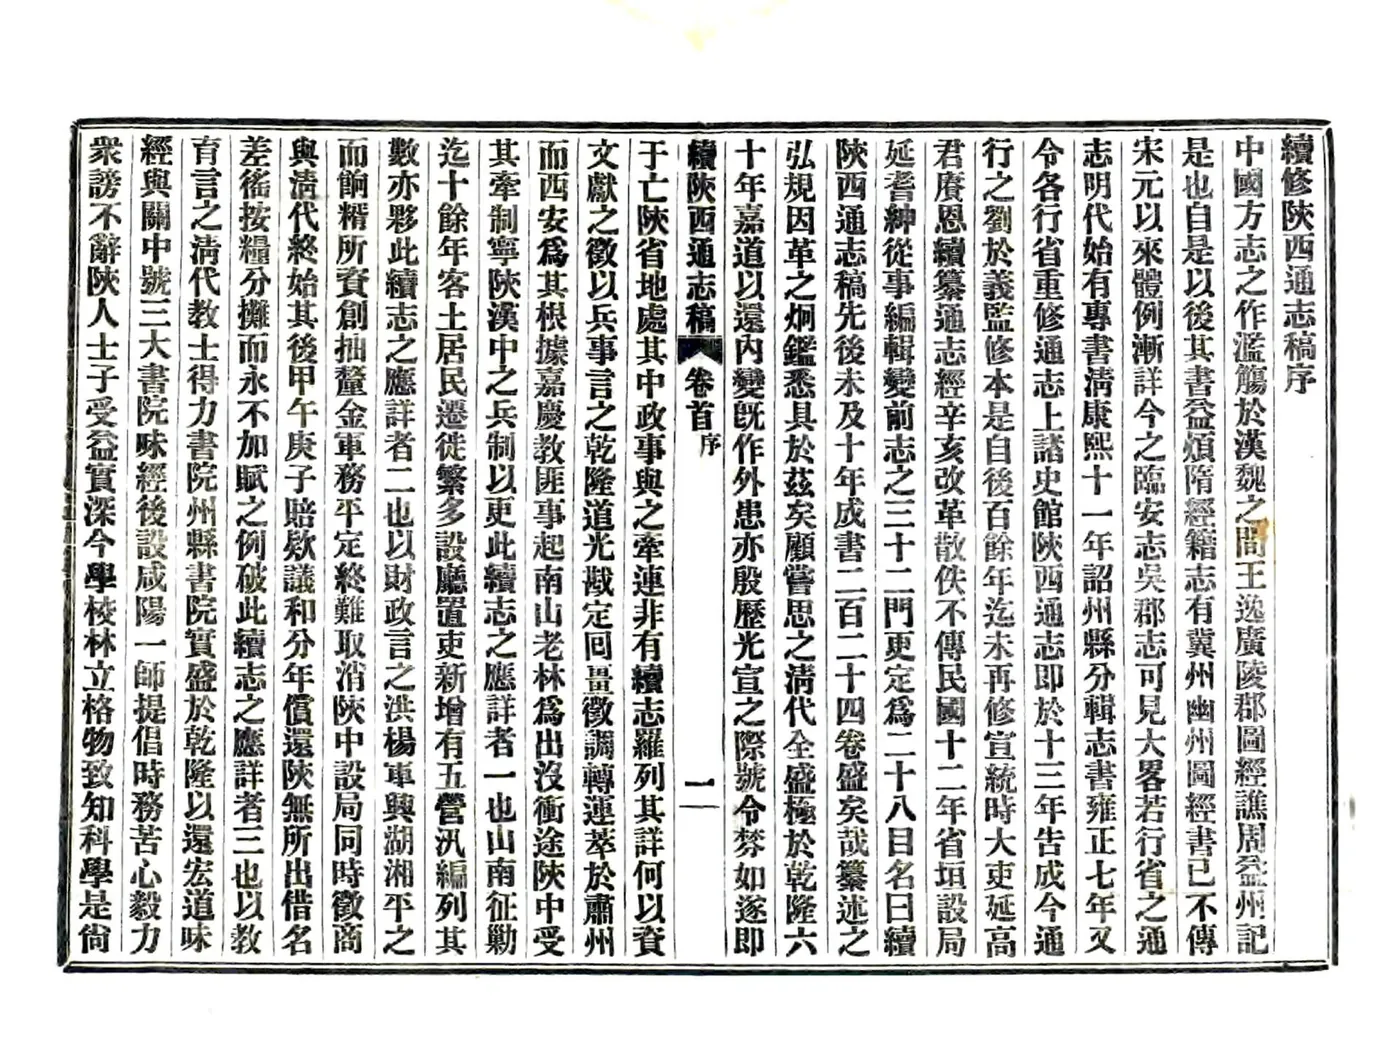 續修陝西通志稿序
中國方志之作濫觴於漢魏之間王逸廣陵郡圖經譙周益州記
是也自是以後其書益煩隋經籍志有冀州幽州圖經書已不傳
宋元以來體例漸詳今之臨安志吳郡志可見大畧若行省之通
志明代始有專書淸康熙十一年詔州縣分輯志書雍正七年又
令各行省重修通志上諸史館陝西通志即於十三年告成今通
行之劉於義監修本是自後百餘年迄未再修宣統時大吏延高
君賡恩續纂通志經辛亥改革散佚不傳民國十二年省垣設局
延耆紳從事編輯變前志之三十二門更定爲二十八目名曰續
陝西通志稿先後未及十年成書二百二十四卷盛矣哉纂述之
弘規因革之炯鑑悉具於茲矣顧嘗思之淸代全盛極於乾隆六
十年嘉道以還內變旣作外患亦殷歷光宣之際號令棼如遂即
續陝西通志稿 卷首 序 一
于亡陝省地處其中政事與之牽連非有續志羅列其詳何以資
文獻之徵以兵事言之乾隆道光戡定回畺徵調轉運萃於肅州
而西安爲其根據嘉慶教匪事起南山老林爲出沒衝途陝中受
其牽制寧陝漢中之兵制以更此續志之應詳者一也山南征勦
迄十餘年客土居民遷徙繁多設廳置吏新增有五營汛編列其
數亦夥此續志之應詳者二也以財政言之洪楊軍興湖湘平之
而餉糈所資創抽釐金軍務平定終難取消陝中設局同時徵商
與淸代終始其後甲午庚子賠欵議和分年償還陝無所出借名
差徭按糧分攤而永不加賦之例破此續志之應詳者三也以教
育言之淸代教士得力書院州縣書院實盛於乾隆以還宏道味
經與關中號三大書院味經後設咸陽一師提倡時務苦心毅力
衆謗不辭陝人士子受益實深今學校林立格物致知科學是尙